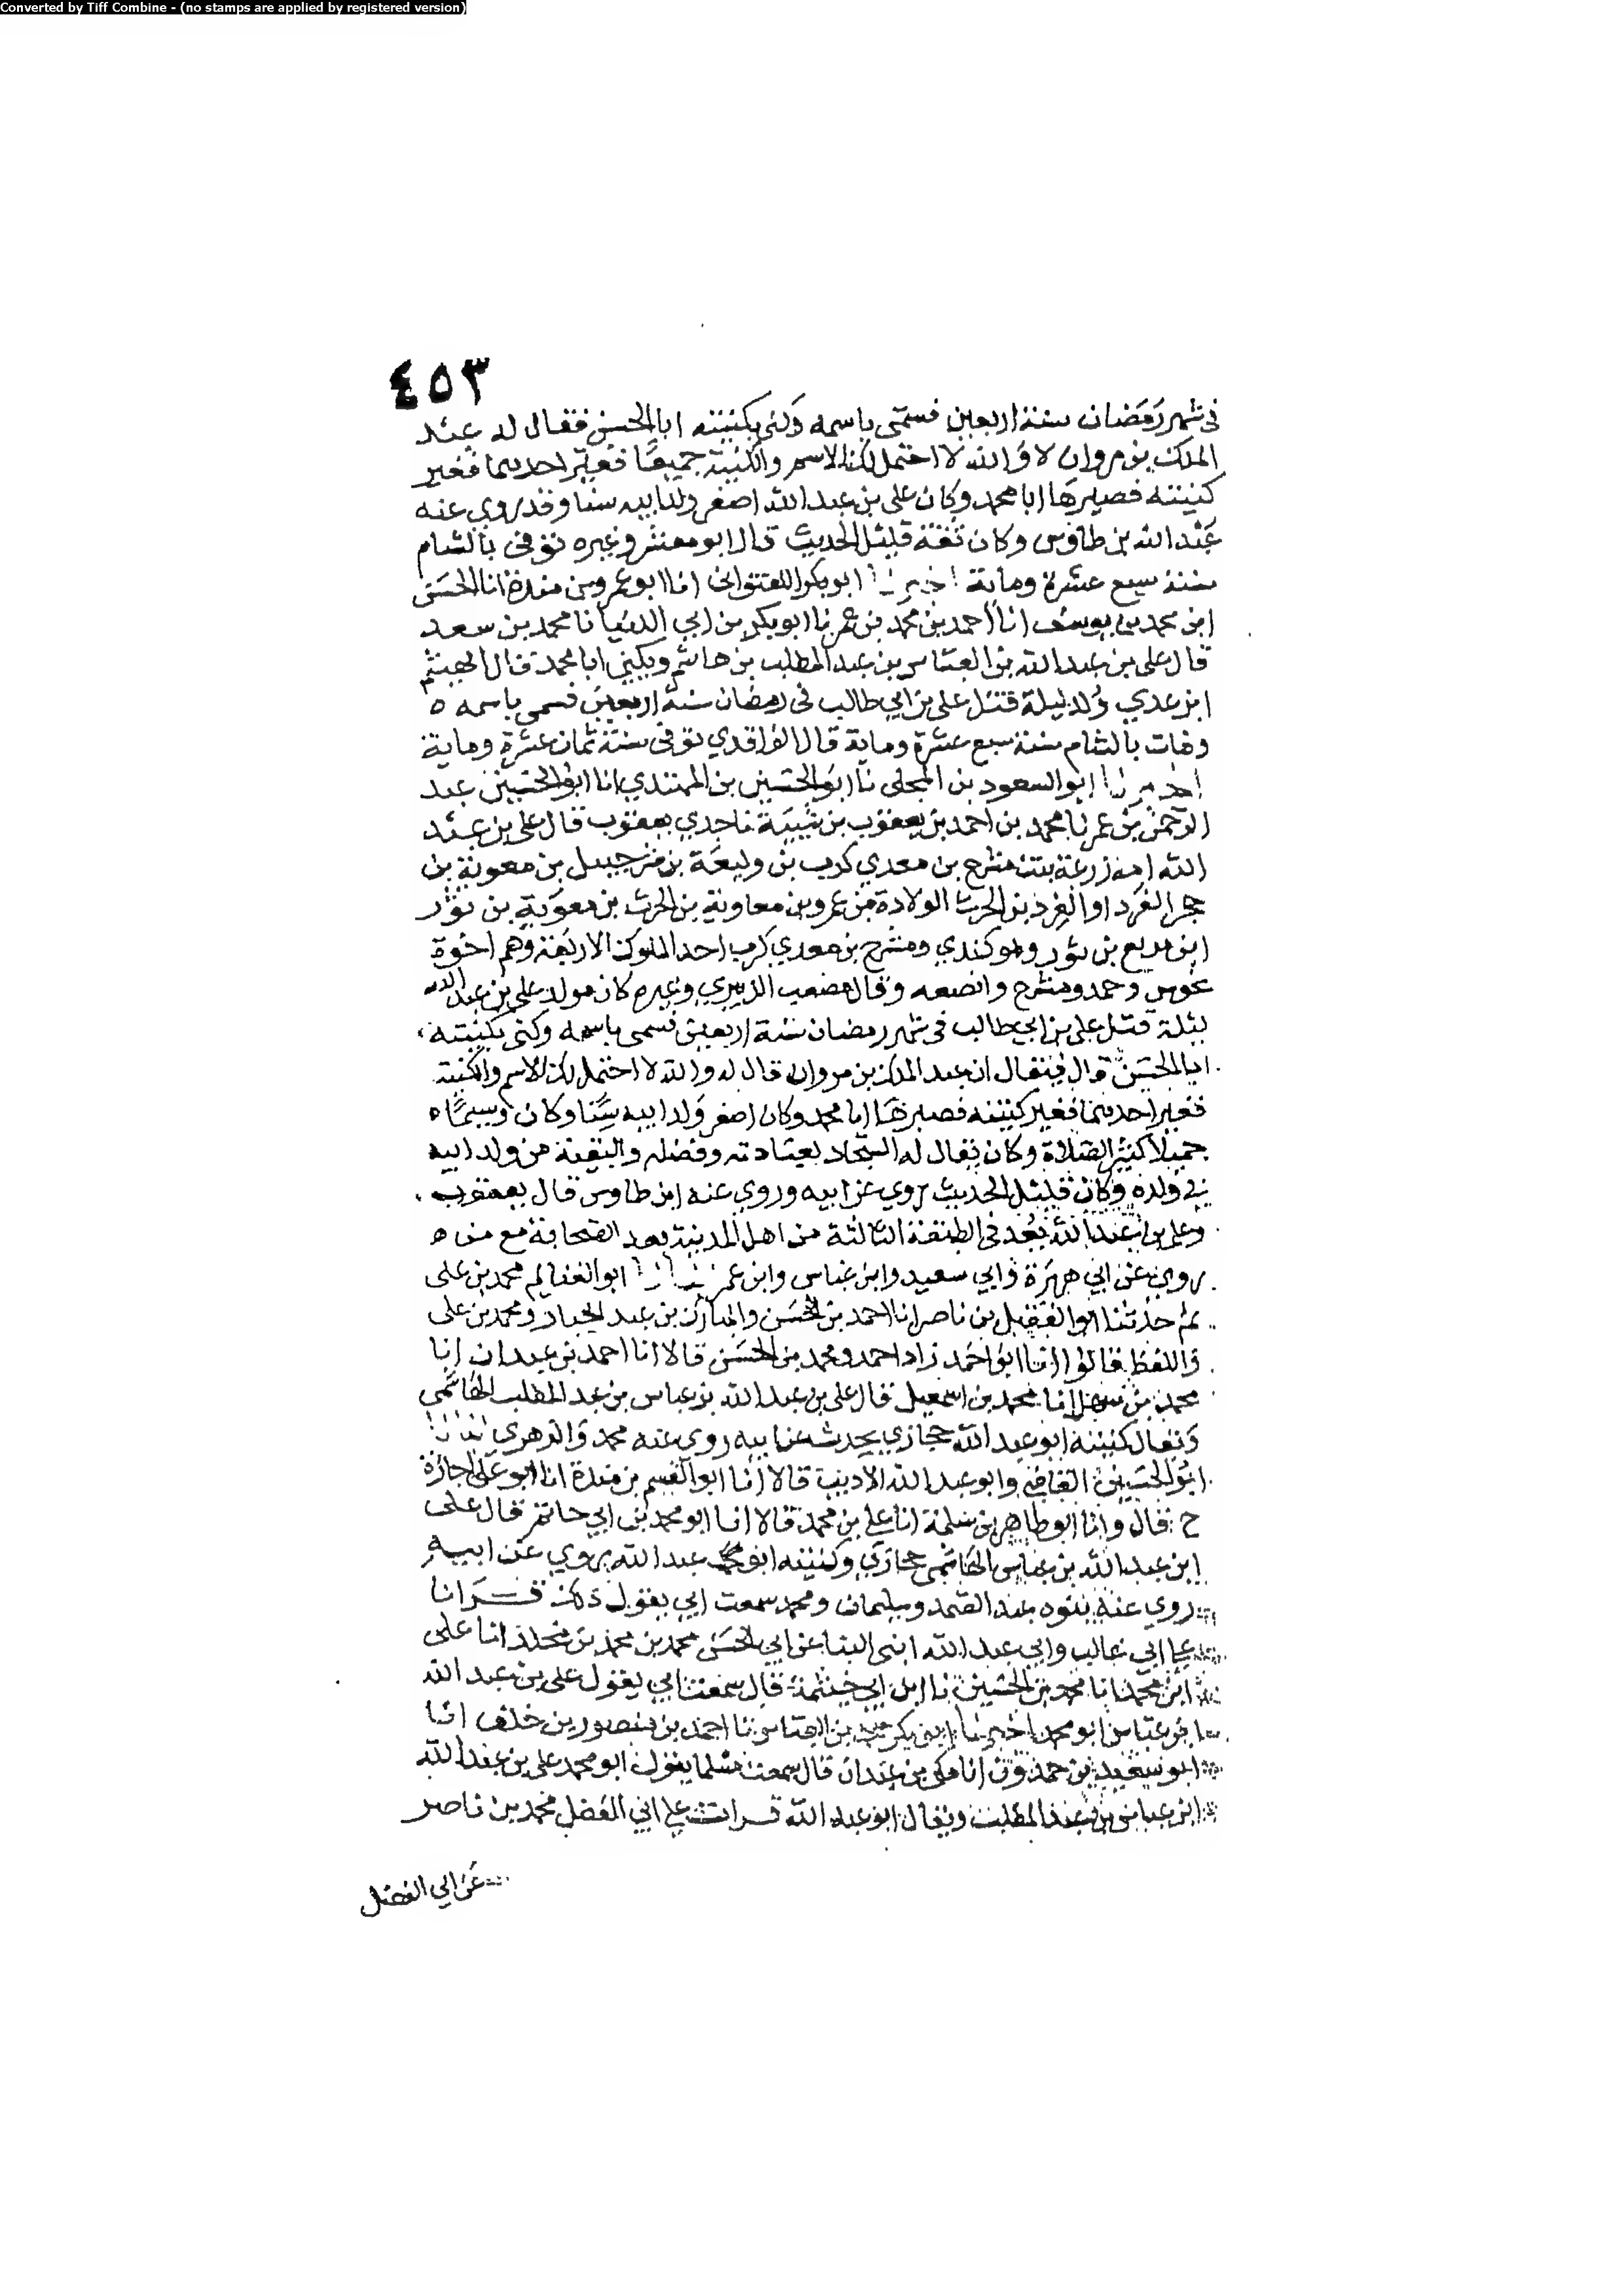 Converted by Tiff Combine - (no stamps are applied by registered version)
٤٥٣
في شهر رمضان سنة اربعين فسمي باسمه وكني بكنيته ابا الحسن فقال له عبد
الملك بن مروان لا والله لا احتمل لك الاسم والكنية جميعا فغير احدهما فغير
كنيته فصيرها ابا محمد وكان علي بن عبد الله اصغر ولد ابيه سنا وقد روى عنه
عبد الله بن طاوس وكان ثقة قليل الحديث قال ابو معشر وغيره توفي بالشام
سنة سبع عشرة وماية اخبرنا ابو بكر اللفتواني انا ابو عمرو بن مندة انا الحسن
ابن محمد بن يوسف انا احمد بن محمد بن عمر نا ابو بكر بن ابي الدنيا نا محمد بن سعد
قال علي بن عبد الله بن العباس بن عبد المطلب بن هاشم ويكنى ابا محمد قال الهيثم
ابن عدي ولد ليلة قتل علي بن ابي طالب في رمضان سنة اربعين فسمي باسمه ه
ومات بالشام سنة سبع عشرة وماية قال الواقدي توفي سنة ثمان عشرة وماية
اخبرنا ابو السعود بن المجلي نا ابو الحسين بن المهتدي انا ابو الحسين عبد
الرحمن بن عمر نا محمد بن احمد بن يعقوب بن شيبة نا جدي يعقوب قال علي بن عبد
الله امه زرعة بنت مشرح بن معدي كرب بن وليعة بن شرحبيل بن معوية بن
حجر الفرد او الفرد بن الحرث الولادة بن عمرو بن معاوية بن الحرث بن معوية بن ثور
ابن مربع بن ثور وهو كندي ومشرح بن معدي كرب احد الملوك الاربعة وهم اخوة
مخوس وحمد ومشرح وابضعه وقال مصعب الزبيري وغيره كان مولد علي بن عبد الله
ليلة قتل علي بن ابي طالب في شهر رمضان سنة اربعين فسمي باسمه وكني بكنيته
ابا الحسن قال فيقال ان عبد الملك بن مروان قال له والله لا احتمل لك الاسم والكنية
فغير احدهما فغير كنيته فصيرها ابا محمد وكان اصغر ولد ابيه سنا وكان وسيما ه
جميلا كثير الصلاة وكان يقال له السجاد لعبادته وفضله والبقية من ولد ابيه
في ولده وكان قليل الحديث روى عن ابيه وروى عنه ابن طاوس قال يعقوب
وعلي بن عبد الله يعد في الطبقة الثالثة من اهل المدينة بعد الصحابة مع من ه
روى عن ابي هريرة وابي سعيد وابن عباس وابن عمر انبانا ابو الغنايم محمد بن علي
ثم حدثنا ابو الفضل بن ناصر انا احمد بن الحسن والمبارك بن عبد الجبار ومحمد بن علي
واللفظ له قالوا انا ابو احمد زاد احمد ومحمد بن الحسن قالا انا احمد بن عبدان انا
محمد بن سهل انا محمد بن اسمعيل قال علي بن عبد الله بن عباس بن عبد المطلب الهاشمي
ويقال كنيته ابو عبد الله حجازي يحدث عن ابيه روى عنه محمد والزهري انبانا
ابو الحسين القاضي وابو عبد الله الاديب قالا انا ابو القسم بن مندة انا ابو علي اجازة
ح قال وانا ابو طاهر بن سلمة انا علي بن محمد قالا انا ابو محمد بن ابي حاتم قال علي
ابن عبد الله بن عباس الهاشمي حجازي وكنيته ابو محمد عبد الله يروي عن ابيه
روى عنه بنوه عبد الصمد وسليمان ومحمد سمعت ابي يقول ذلك قرانا
على ابي غالب وابي عبد الله ابني البنا عن ابي الحسن محمد بن محمد بن مخلد انا علي
ابن محمد انا محمد بن الحسين نا ابن ابي خيثمة قال سمعت ابي يقول علي بن عبد الله
ابن عباس ابو محمد اخبرنا ابو بكر محمد بن العباس نا احمد بن منصور بن خلف انا
ابو سعيد بن حمدون انا مكي بن عبدان قال سمعت مسلما يقول ابو محمد علي بن عبد الله
ابن عباس بن عبد المطلب ويقال ابو عبد الله قرات على ابي الفضل محمد بن ناصر
عن ابي الفضل